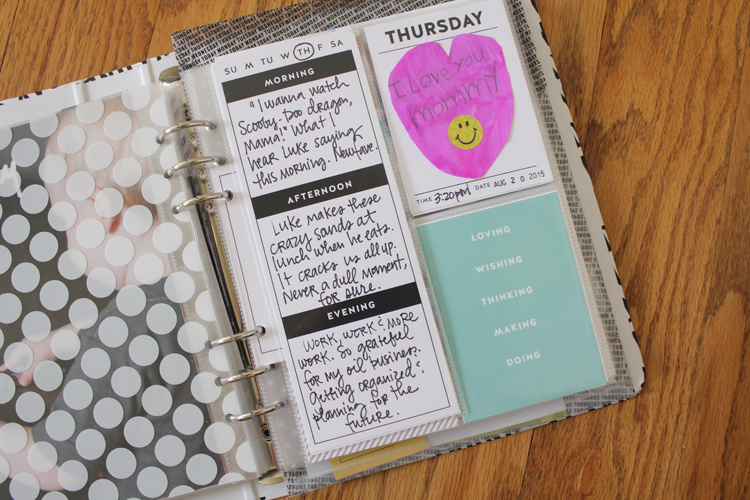 SU M TU W TH F SA
MORNING
"I wanna watch
Scooby. Doo dragon,
Mama!" What I
hear Luke saying
this morning. New fave.
AFTERNOON
Luke makes these
crazy sands at
lunch when he eats.
It cracks us all up.
Never a dull moment,
for sure.
EVENING
WORK, WORK & MORE
WORK. So grateful
for my oil business!
getting organized &
planning for the
future.
THURSDAY
I love you
mommy
TIME 3:20pm DATE AUG 20 2015
LOVING
WISHING
THINKING
MAKING
DOING